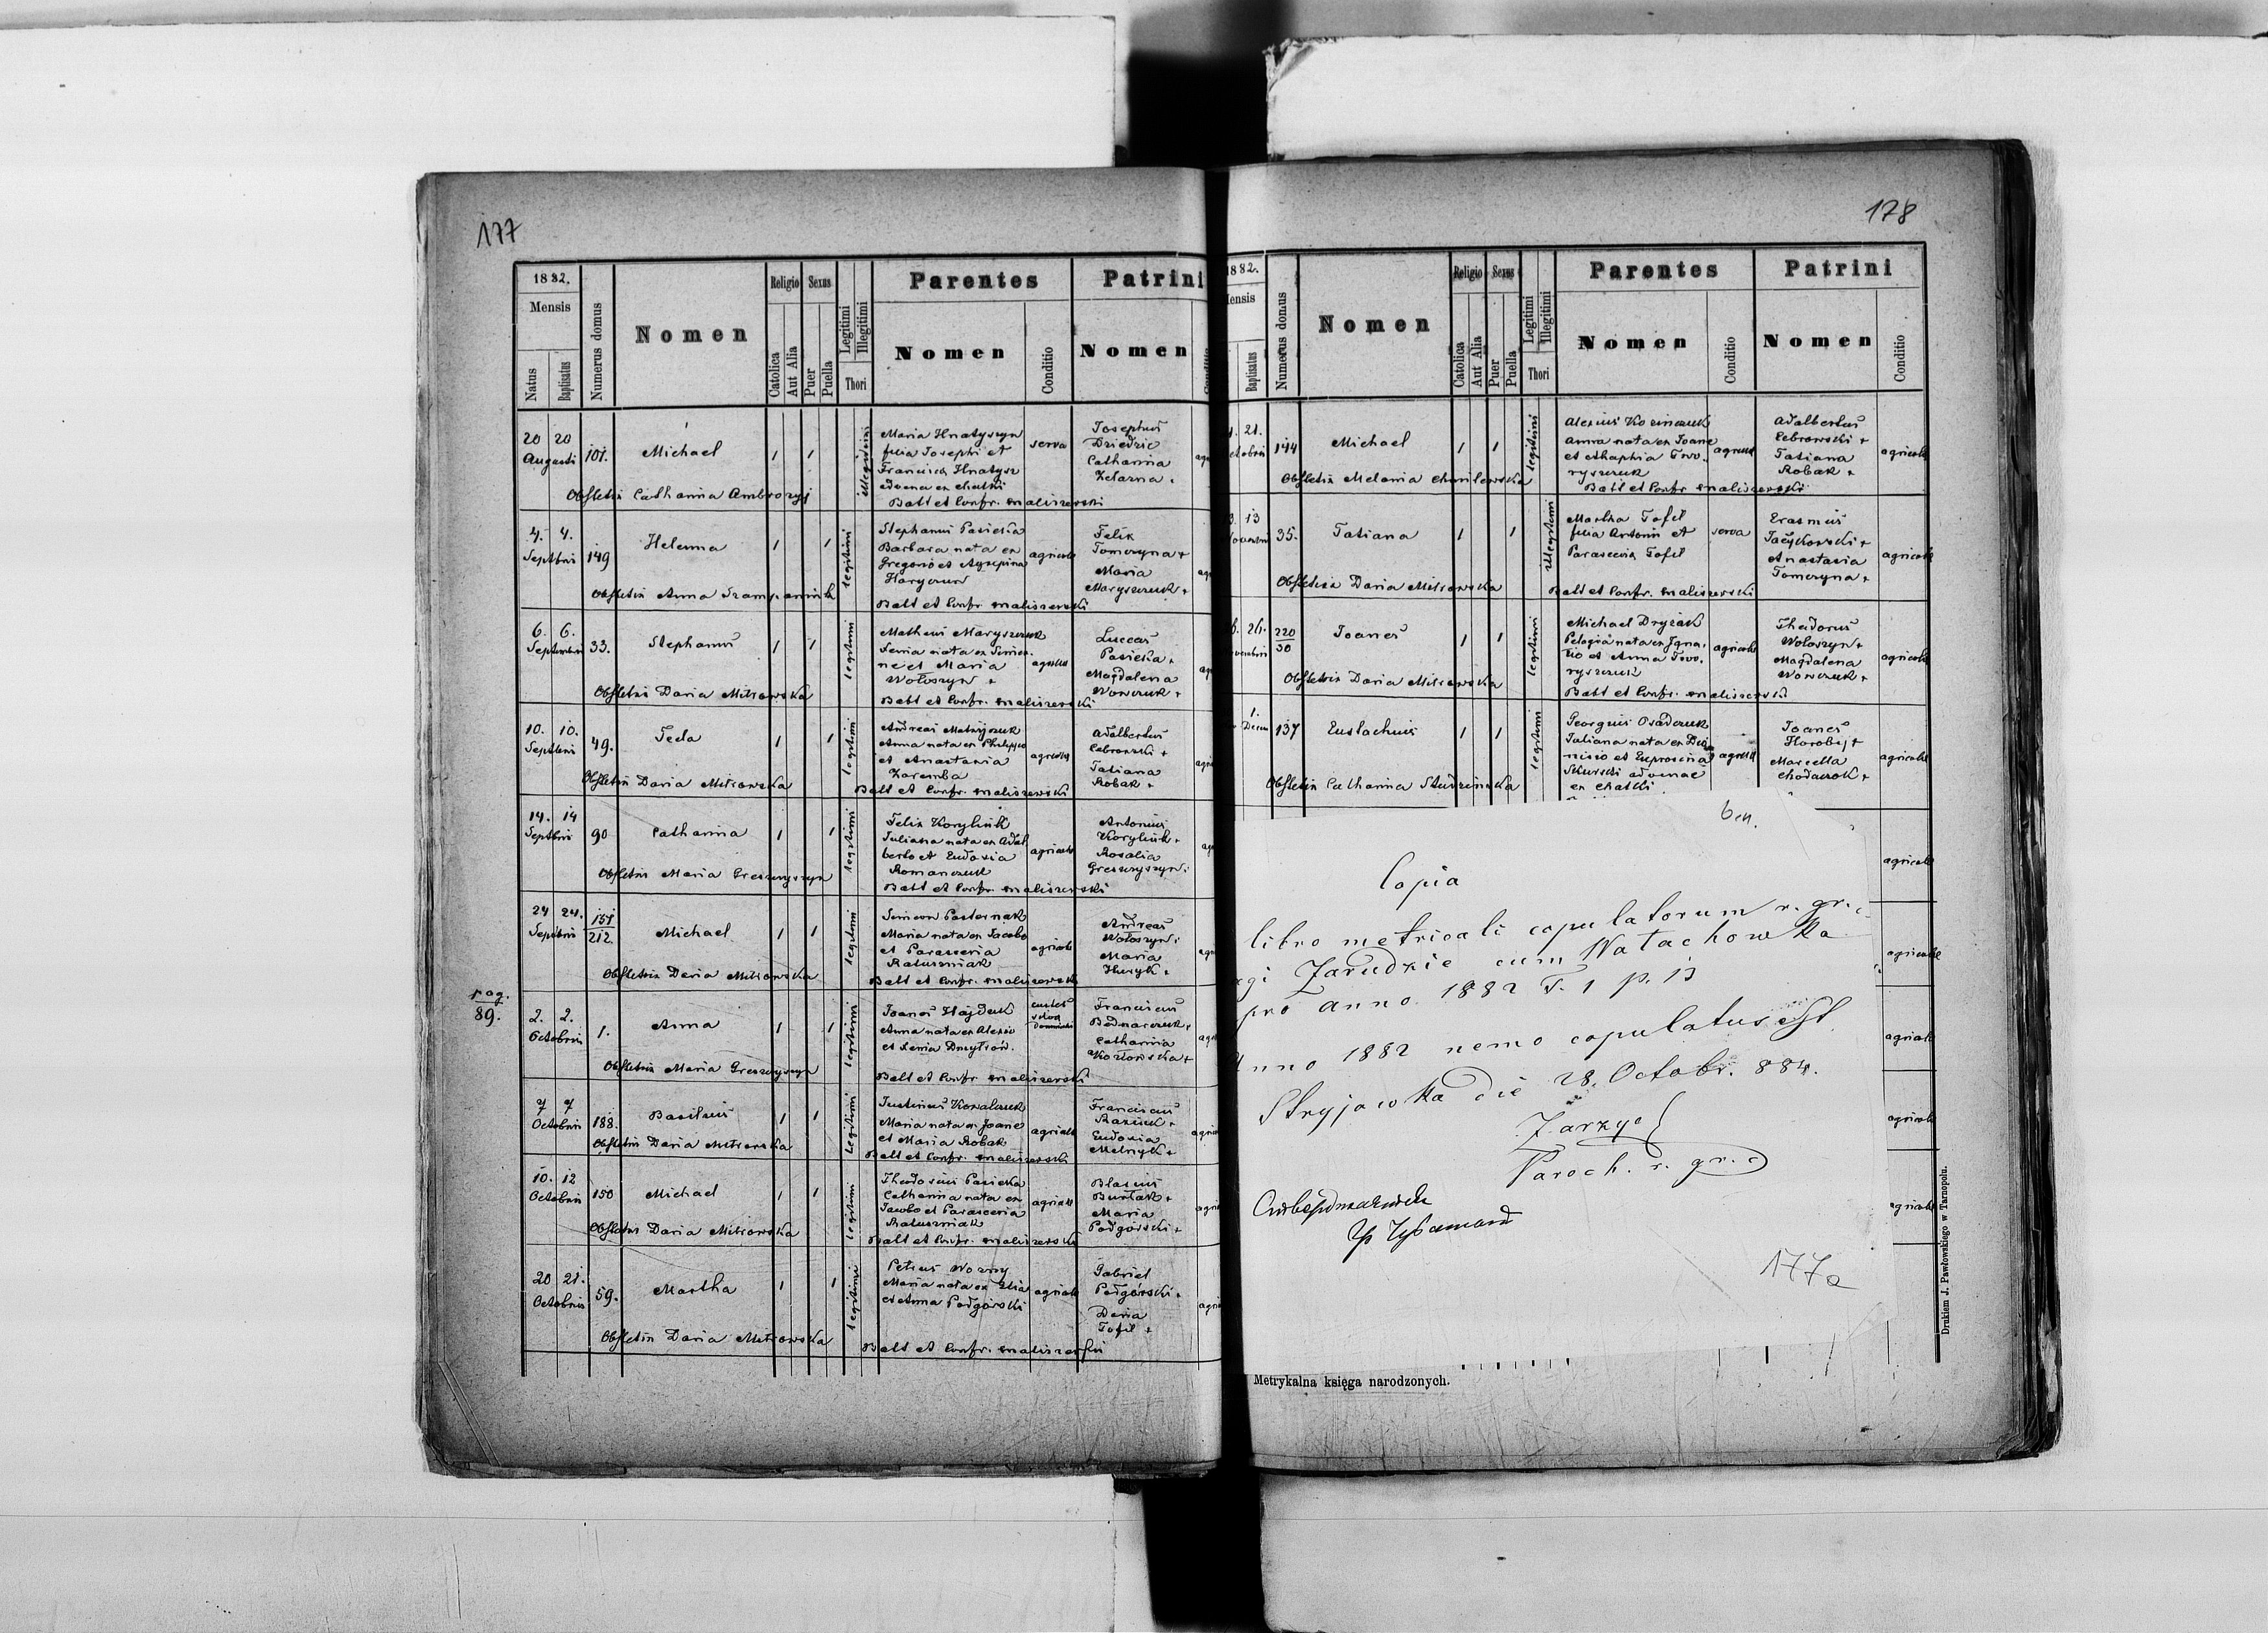 177
1882.
Mensis
Natus
Baptisatus
Numerus domus
Nomen
Religio
Catolica
Aut Alia
Sexus
Puer
Puella
Legitimi
Illegitimi
Thori
Parentes
Nomen
Conditio
Patrini
Nomen
20 20
Augusti
101.
Michael
1 1
Illegitimi
Maria Hnatyszyn
filia Josephi et
Francisca Hnatysz
advena ex Chatki
serva
Josephus
Dziedzic
Catharina
Zelazna
Obstetrix Catharina Ambrozyj
Bapt et Confr. Maliszewski
4. 4.
Septbris
149
Helenna
1 1
legitimi
Stephanus Pasieka
Barbara nata ex
Gregorio et Agrepina
Haryczun
agricola
Felix
Tomczyna +
Maria
Maryszczuk +
Obstetrix Anna
Bapt et Confr. Maliszewski
6. 6.
Septembris
33.
Stephanus
1 1
legitimi
Matheus Maryszczuk
Xenia nata ex Simeo
ne et Maria
Wołoszyn +
agricola
Luccas
Pasieka +
Magdalena
Wowczuk +
Obstetrix Daria Mitrowska
Bapt et Confr. Maliszewski
10. 10.
Septbris
49.
Tecla
1 1
legitimi
Andreas Matwijczuk
Anna nata ex Philippo
et Anastasia
Zaremba
agricola
Adalbertus
Cebrowski +
Tatiana
Robak +
Obstetrix Daria Mitrowska
Bapt et Confr. Maliszewski
14. 14
Septbris
90
Catharina
1 1
legitimi
Felix Koryluk
Juliana nata ex Adal
berto et Eudoxia
Romanczuk
agricola
Antonius
Koryluk +
Rosalia
Greszczyszyn
Obstetrix Maria Greszczyszyn
Bapt et Confr. Maliszewski
24 24.
Septbris
151
212.
Michael
1 1
legitimi
Simeon Pasternak
Maria nata ex Jacobo
et Parascevia
Ratuszniak
agricola
Andreas
Wołoszyn
Maria
Huryk +
Obstetrix Daria Mitrowska
Bapt et Confr. Maliszewski
pag.
89.
2. 2.
Octobris
1.
Anna
1 1
legitimi
Joanes Hajduk
Anna nata ex Alexio
et Xenia Dmytrów.
Franciscus
Bednarczuk +
Catharina
Kozłowska +
Obstetrix Maria Greszczyszyn
Bapt et Confr Maliszewski
7 7
Octobris
188.
Basilius
1 1
Legitimi
Justinus Kowalczuk
Maria nata ex Joane
et Maria Robak
agricola
Franciscus
Eudoxia
Melnyk +
Obstetrix Daria Mitrowska
Bapt et Confr. Maliszewski
10. 12
Octobris
150
Michael
1 1
legitimi
Theodosius Pasieka
Catharina nata ex
Jacobo et Parascevia
Ratuszniak
agricola
Blasius
Burłak +
Maria
Podgórski +
Obstetrix Daria Mitrowska
Bapt et Confr. Maliszewski
20 21.
Octobris
59.
Martha
1 1
legitimi
Petrus Wozny
Maria nata ex Elia
et Anna Podgórski
agricola
Gabriel
Podgórski +
Daria
Tofil +
Obstetrix Daria Mitrowska
Bapt et Confr. Maliszewski
178
1882.
Mensis
Baptisatus
Numerus domus
Nomen
Religio
Catolica
Aut Alia
Sexus
Puer
Puella
Legitimi
Illegitimi
Thori
Parentes
Nomen
Conditio
Patrini
Nomen
Conditio
21.
144
Michael
1 1
legitimi
Alexius Kozinczuk
Anna nata ex Joane
et Ahaphia Two-
ryszczuk
agricola
Adalbertus
Cebrowski +
Tatiana
Robak +
agricola
Obstetrix Melania Chmilowska
Bapt et Confr Maliszewski
13
35.
Tatiana
1 1
illegitimi
Martha Tofil
filia Antonii et
Parascevia Tofil
serva
Erasmus
Jaćkowski +
Anastasia
Tomczyna +
agricola
Obstetrix Daria Mitrowska
Bapt et Confr. Maliszewski
26.
220
30
Joanes
1 1
legitimi
Michael Dryżak
Pelagia nata ex Igna-
tio et Anna Two-
ryszczuk
agricola
Theodorus
Wołoszyn +
Magdalena
Wowczuk +
agricola
Obstetrix Daria Mitrowska
Bapt et Confr. Maliszewski
1.
Decem
137
Eustachius
1 1
legitimi
Georgius Osadczuk
Tatiana nata ex Dio
nisio et Euprosina
Skurski advenae
ex Chatki
agricola
Joanes
Horobij +
Marcella
Chodaczok +
agricola
Obstetrix Catharina Studzinska
Copia
libro metricali copulatorum r. gr. c.
Zarudzie cum Natachowka
pro anno 1882 T. 1 p. 13
Anno 1882 nemo copulatus est
Stryjowka die 28. Octobr. 884.
Zarzyc
Paroch. r. gr. c
177a
agricola
agricola
agricola
agricola
agricola
Metrykalna księga narodzonych.
Drukiem J. Pawłowskiego w Tarnopolu.